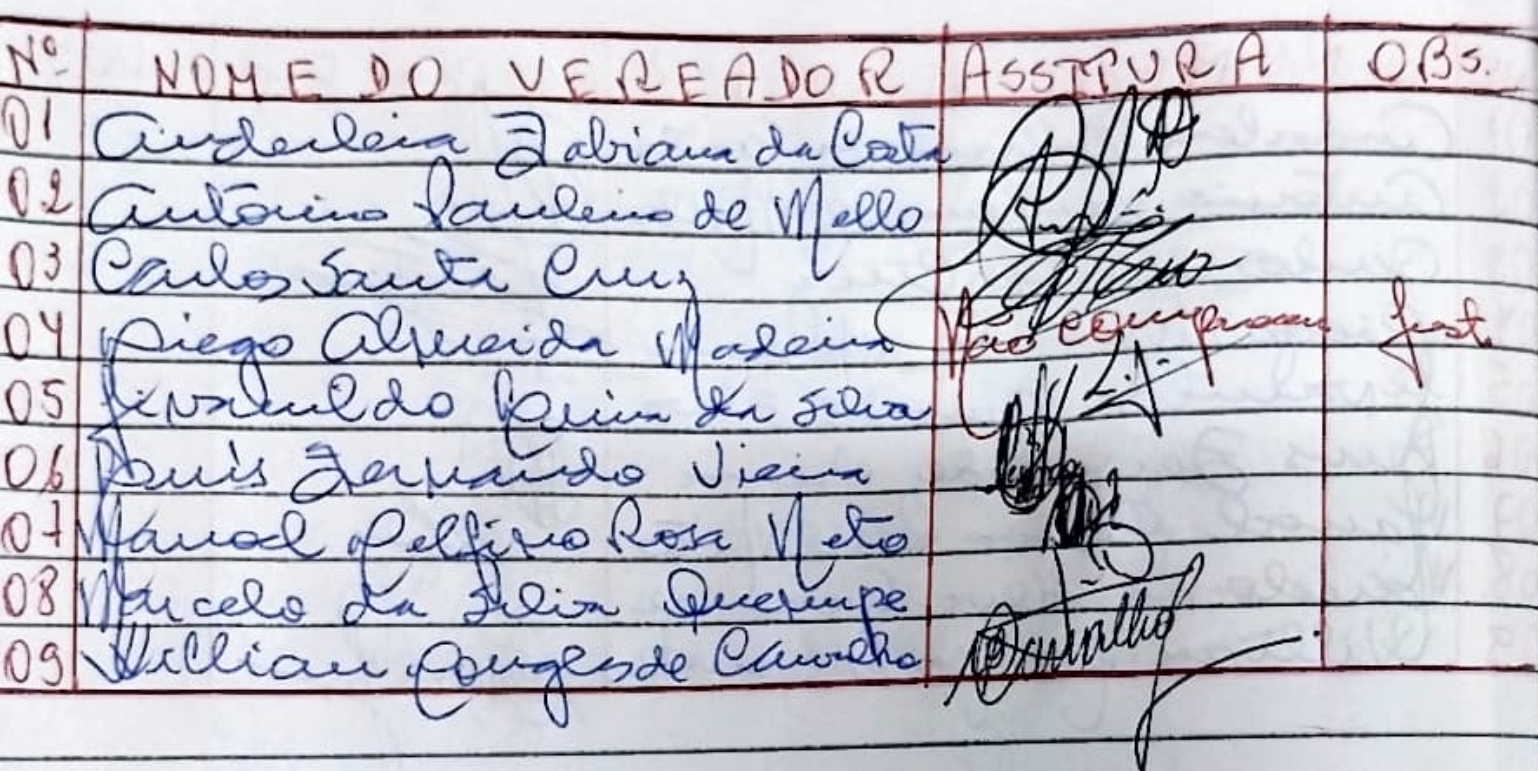 Nº NOME DO VEREADOR ASSITURA OBS.
01 Anderleia Fabiana da Costa
02 Antonino Paulino de Mello
03 Carlos Santa Cruz
04 Diego Almeida Madeira Não compareceu Just.
05 da Silva L.A.
06 Luís Fernando Vieira
07 Manoel Delfino Rosa Neto
08 Marcelo da Silva
09 Willian de Carvalho Carvalho